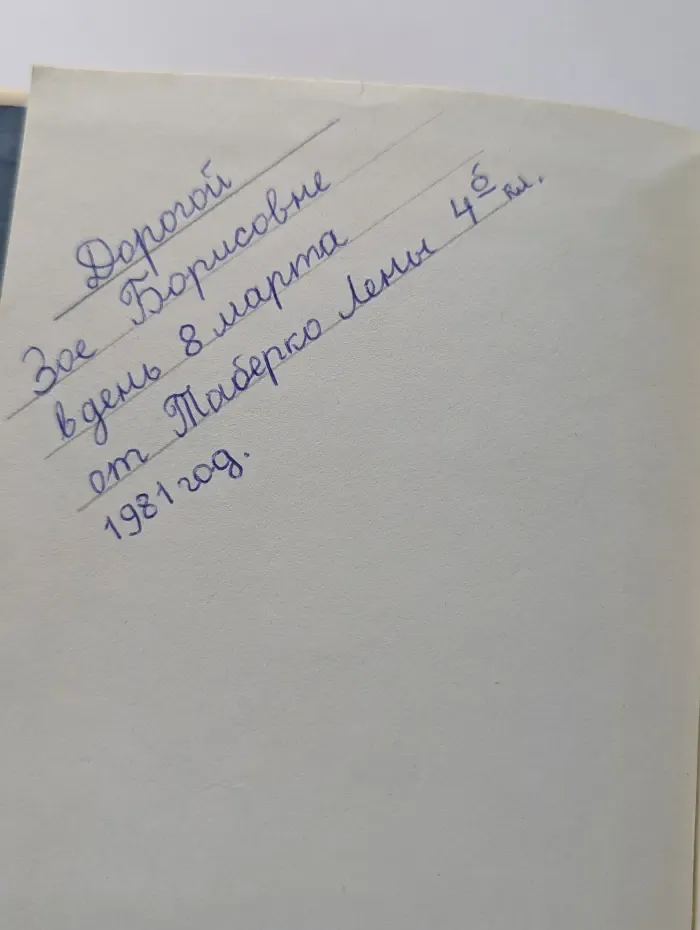 Дорогой
Зое Борисовне
в день 8 марта
от Таберко Лены 4б кл.
1981 год.